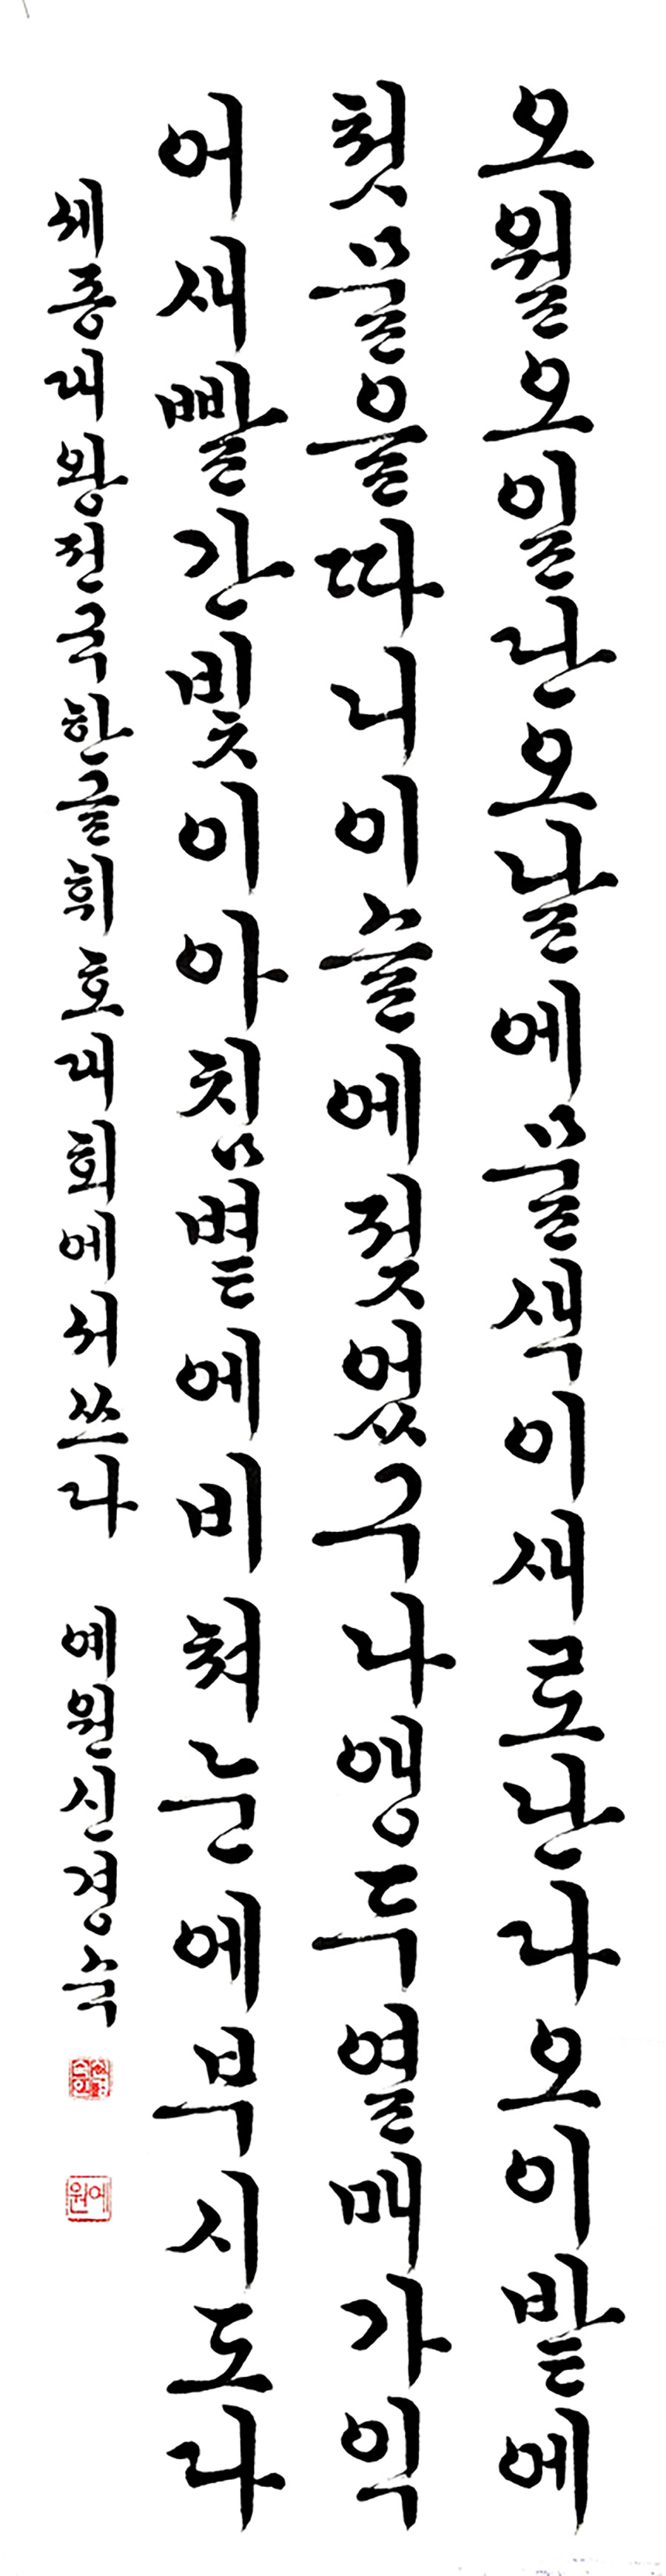 오월오일난오날에믈색이새로난다오이밭에
첫믈을따니이슬에젖었구나앵두열매가익
어새빨간빛이아침볕에비쳐눈에부시도다
세종대왕전국한글휘호대회에서쓰다 예원신경숙
예원